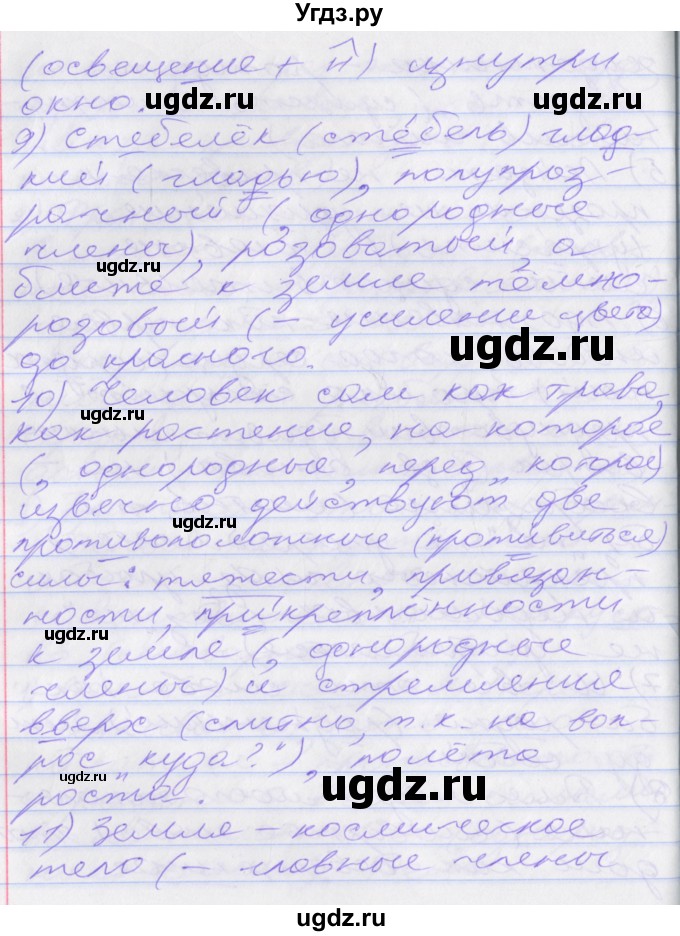 Угдз.ру
(освещение + й) изнутри
окно.
ugdz.ru ugdz.ru
9) Стебелёк (сте́бель) глад-
кий (гладью), полупроз-
рачный (, однородные
члены), розоватый, а
ugdz.ru
ближе к земле тёмно-
розовый (– усиление цвета)
ugdz.ru
до красного.
10) Человек сам как трава,
ugdz.ru
как растение, на которое
(, однородные, перед „которое)
извечно действуют две
ugdz.ru
противоположные (противиться)
силы: тяжести, привязан-
ности, прикреплённости
ugdz.ru
к земле (, однородные
члены) и стремление
вверх (слитно, т.к. на воп-
рос „куда?"), полёта
ugdz.ru ugdz.ru
роста.
11) Земля – космическое
тело (– главные члены
ugdz.ru